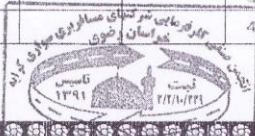 انجمن صنفی کارفرمایی شرکتهای مسافربری سواری کرایه
خراسان رضوی
تاسیس
۱۳۹۱
ثبت
۲/۲/۱۰/۲۲۹